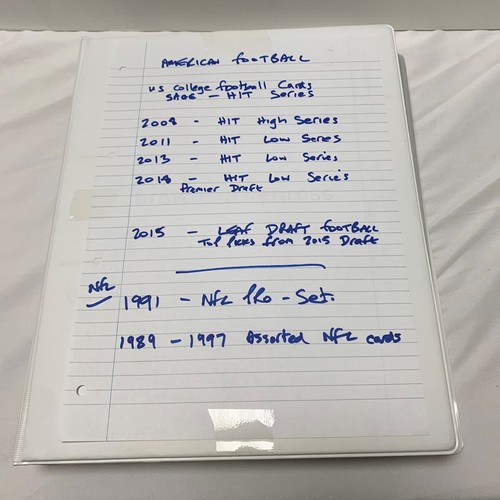 AMERICAN FOOTBALL
US College football Cards
SAGE - HIT Series
2008 - HIT High Series
2011 - HIT Low Series
2013 - HIT Low Series
2018 - HIT Low Series
Premier Draft
2015 - LEAF DRAFT FOOTBALL
Top Picks from 2015 Draft
NFL
1991 - NFL PRO - Set.
1989 - 1997 Assorted NFL cards